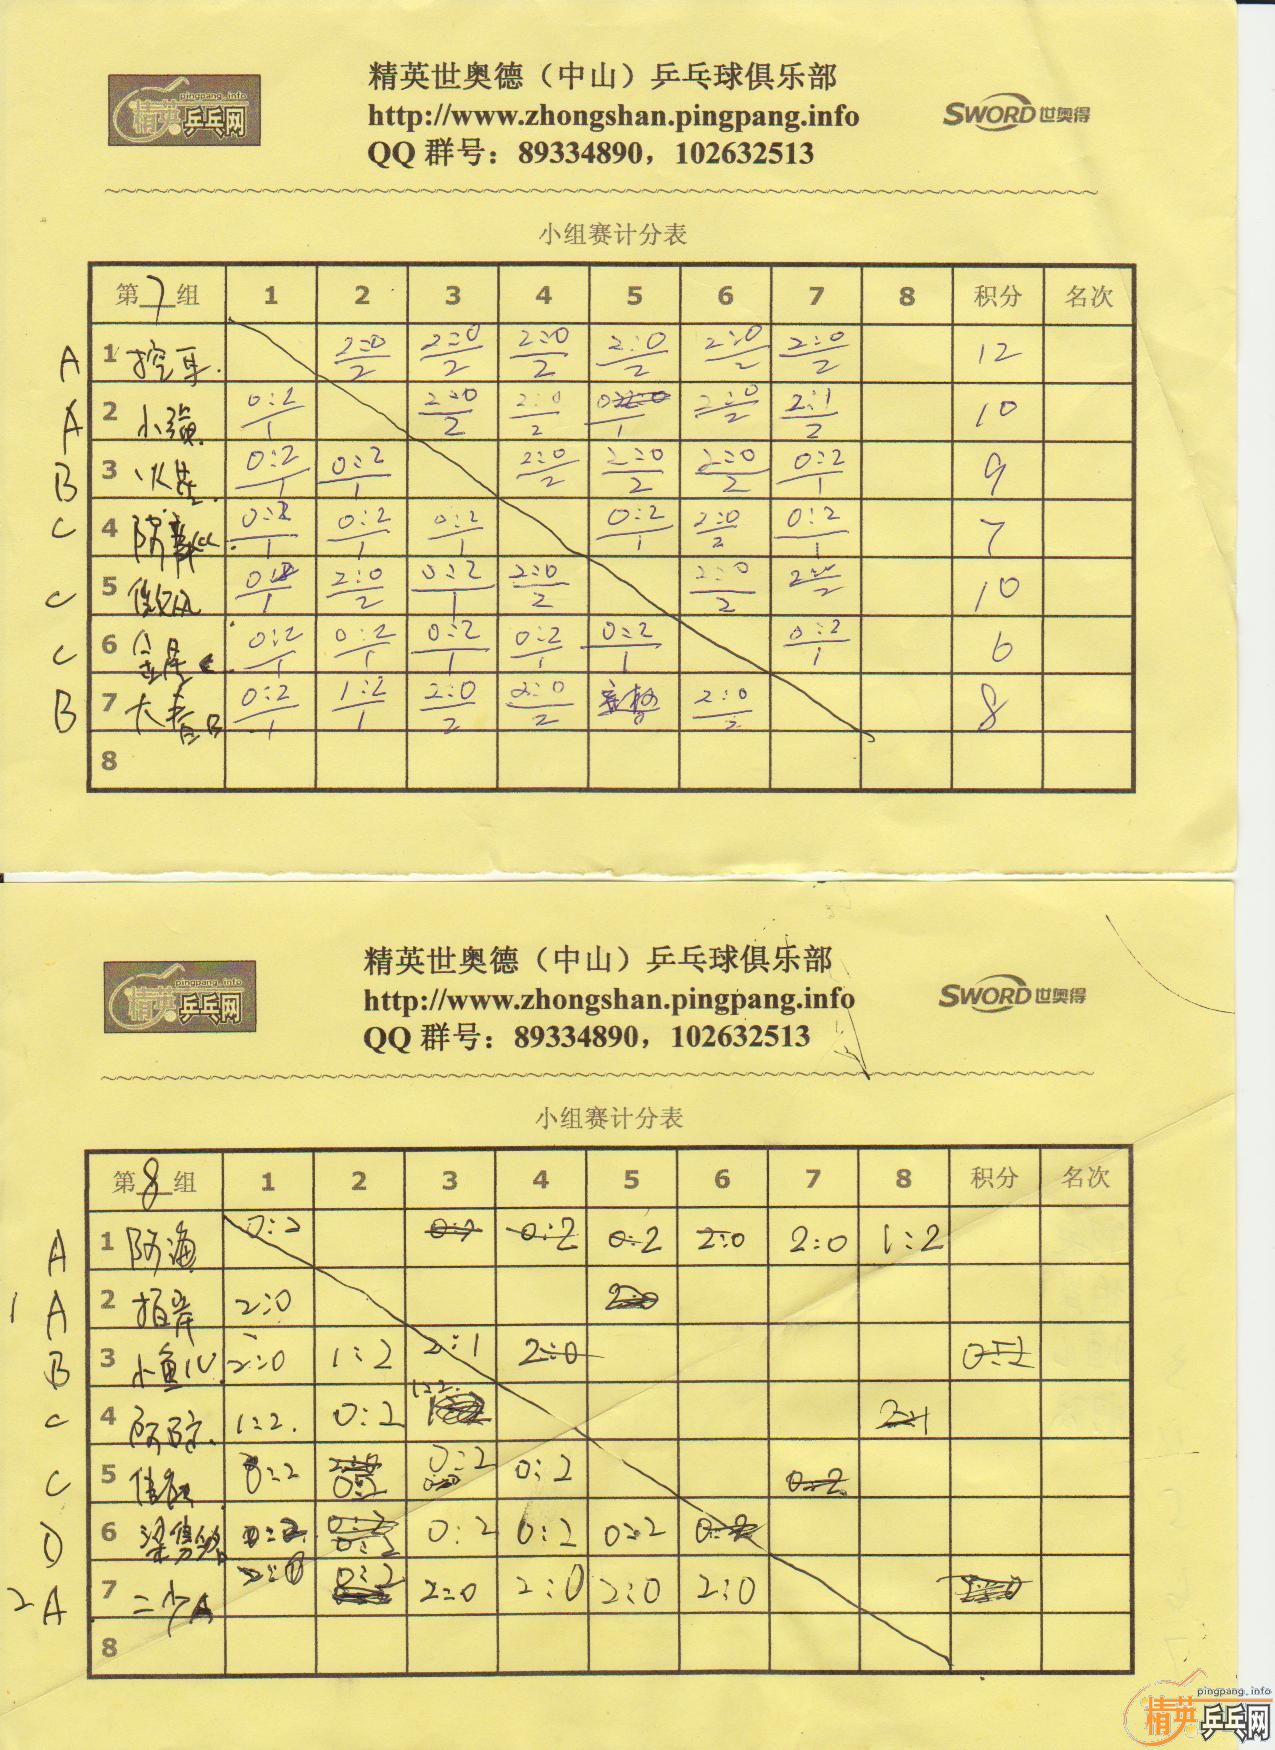 pingpang.info
精英乒乓网
精英世奥德（中山）乒乓球俱乐部
http://www.zhongshan.pingpang.info
QQ 群号：89334890，102632513
SWORD世奥得
小组赛计分表
第7组 1 2 3 4 5 6 7 8 积分 名次
A 1 2:0/2 2:0/2 2:0/2 2:0/2 2:0/2 2:0/2 12
A 2 小强 0:2/1 2:0/2 2:0/2 2:0/2 2:1/2 10
B 3 0:2/1 0:2/1 2:0/2 2:0/2 2:0/2 0:2/1 9
C 4 0:2/1 0:2/1 0:2/1 0:2/1 2:0/2 0:2/1 7
C 5 2:0/2 0:2/1 2:0/2 2:0/2 10
C 6 0:2/1 0:2/1 0:2/1 0:2/1 0:2/1 0:2/1 6
B 7 0:2/1 1:2/1 2:0/2 2:0/2 2:0/2 8
8
pingpang.info
精英乒乓网
精英世奥德（中山）乒乓球俱乐部
http://www.zhongshan.pingpang.info
QQ 群号：89334890，102632513
SWORD世奥得
小组赛计分表
第8组 1 2 3 4 5 6 7 8 积分 名次
A 1 阿海 0:2 0:2 0:2 2:0 2:0 1:2
1 A 2 2:0
B 3 小鱼儿 2:0 1:2 2:1 2:0
C 4 1:2 0:2 1:2
C 5 0:2 0:2 0:2 0:2
D 6 0:2 0:2 0:2
2 A 7 二少A 0:2 2:0 2:0 2:0 2:0
8
pingpang.info
精英乒乓网